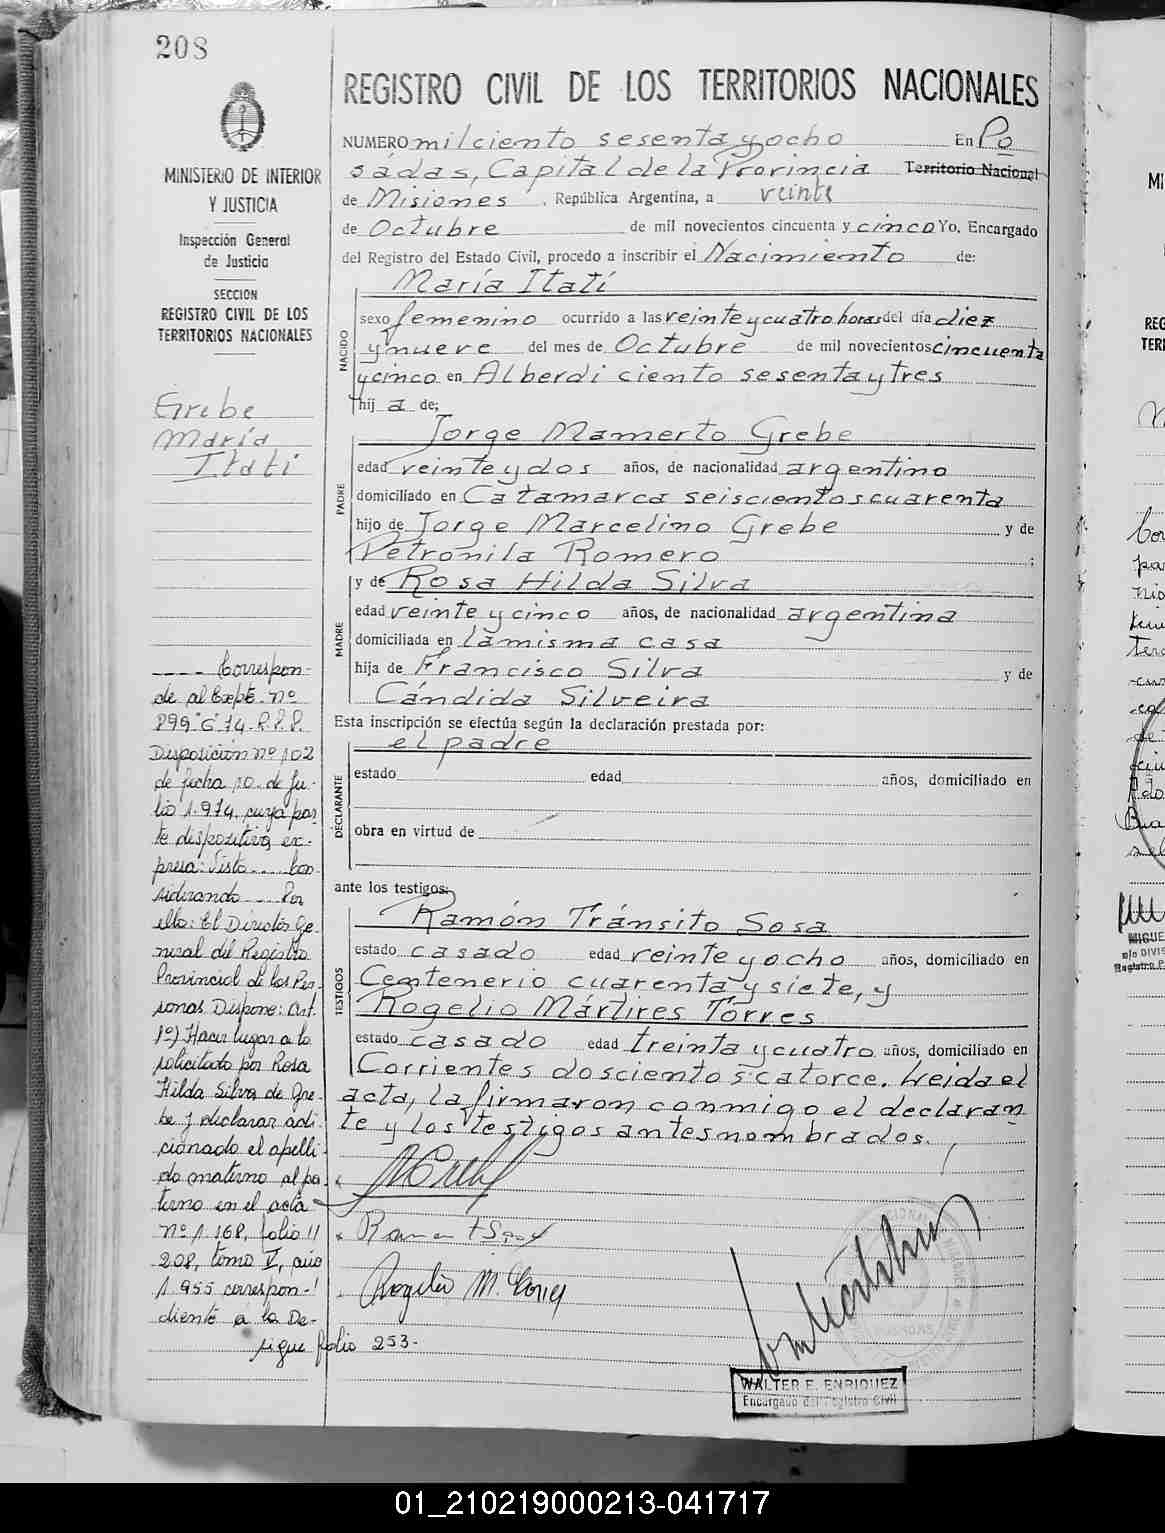 208
MINISTERIO DE INTERIOR
Y JUSTICIA
Inspección General
de Justicia
SECCION
REGISTRO CIVIL DE LOS
TERRITORIOS NACIONALES
Grebe
María
Itatí
---- Correspon-
de al Expte. nº
899"G"74. R.P.P.
Disposición nº 102
de fecha 10. de Ju-
lio 1.974. cuya par
te dispositiva ex-
presa: Visto.... Con-
siderando.... Por
ello: El Director Ge-
neral del Registro
Provincial de las Per-
sonas Dispone: Art.
1º) Hacer lugar a lo
solicitado por Rosa
Hilda Silva de Gre-
be y declarar adi-
cionado el apelli-
do materno al pa-
terno en el acta
nº 1.168, folio
208, tomo V, año
1.955 correspon-
diente a la De-
sigue folio 253.
REGISTRO CIVIL DE LOS TERRITORIOS NACIONALES
NUMERO mil ciento sesenta y ocho En Po
sadas, Capital de la Provincia Territorio Nacional
de Misiones, República Argentina, a veinte
de Octubre de mil novecientos cincuenta y cinco Yo, Encargado
del Registro del Estado Civil, procedo a inscribir el Nacimiento de:
NACIDO
María Itatí
sexo femenino ocurrido a las veinte y cuatro horas del día diez
y nueve del mes de Octubre de mil novecientos cincuenta
y cinco en Alberdi ciento sesenta y tres
hij a de;
PADRE
Jorge Mamerto Grebe
edad veinte y dos años, de nacionalidad argentino
domiciliado en Catamarca seiscientos cuarenta
hijo de Jorge Marcelino Grebe y de
Petronila Romero ;
MADRE
y de Rosa Hilda Silva
edad veinte y cinco años, de nacionalidad argentina
domiciliada en la misma casa
hija de Francisco Silva y de
Cándida Silveira
Esta inscripción se efectúa según la declaración prestada por:
DECLARANTE
el padre
estado edad años, domiciliado en
obra en virtud de
ante los testigos:
TESTIGOS
Ramón Tránsito Sosa
estado casado edad veinte y ocho años, domiciliado en
Centenerio cuarenta y siete, y
Rogelio Mártires Torres
estado casado edad treinta y cuatro años, domiciliado en
Corrientes doscientos catorce. Leida el
acta, la firmaron conmigo el declaran
te y los testigos antes nombrados.
Rogelio M. Torres
WALTER E. ENRIQUEZ
Encargado del Registro Civil
01_210219000213-041717